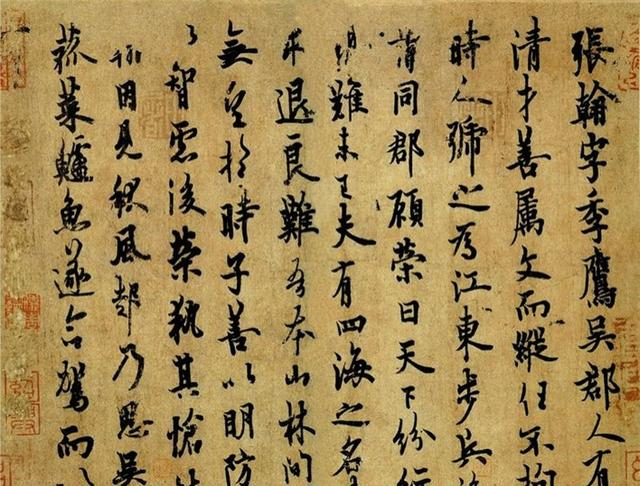 張翰字季鷹吳郡人有
清才善属文而縱任不拘
時人號之為江東步兵
同郡顧榮曰天下紛紜
難未已夫有四海之名
求退良難吾本山林間
無望於時子善以明防
智慮後榮執其愴
翰因見秋風起乃思吳
菰菜鱸魚遂命駕而